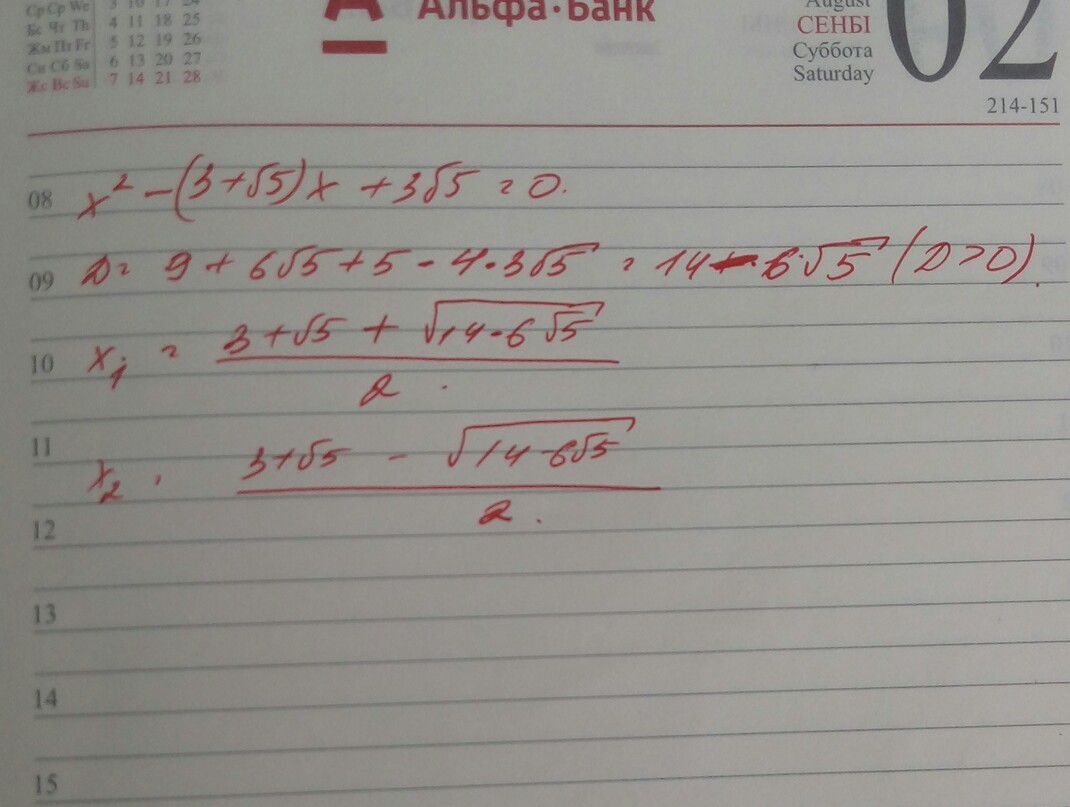 Ср Ср We 3 10 17 24
Бс Чт Th 4 11 18 25
Жм Пт Fr 5 12 19 26
Сн Сб Sa 6 13 20 27
Жс Вс Su 7 14 21 28
Альфа·Банк
August
СЕНБІ
Суббота
Saturday
02
214-151
08 x² - (3+√5)x + 3√5 = 0.
09 D = 9 + 6√5 + 5 - 4·3√5 = 14 - 6√5 (D>0).
10 x₁ = (3+√5 + √(14-6√5))/2.
11 x₂ = (3+√5 - √(14-6√5))/2.
12
13
14
15